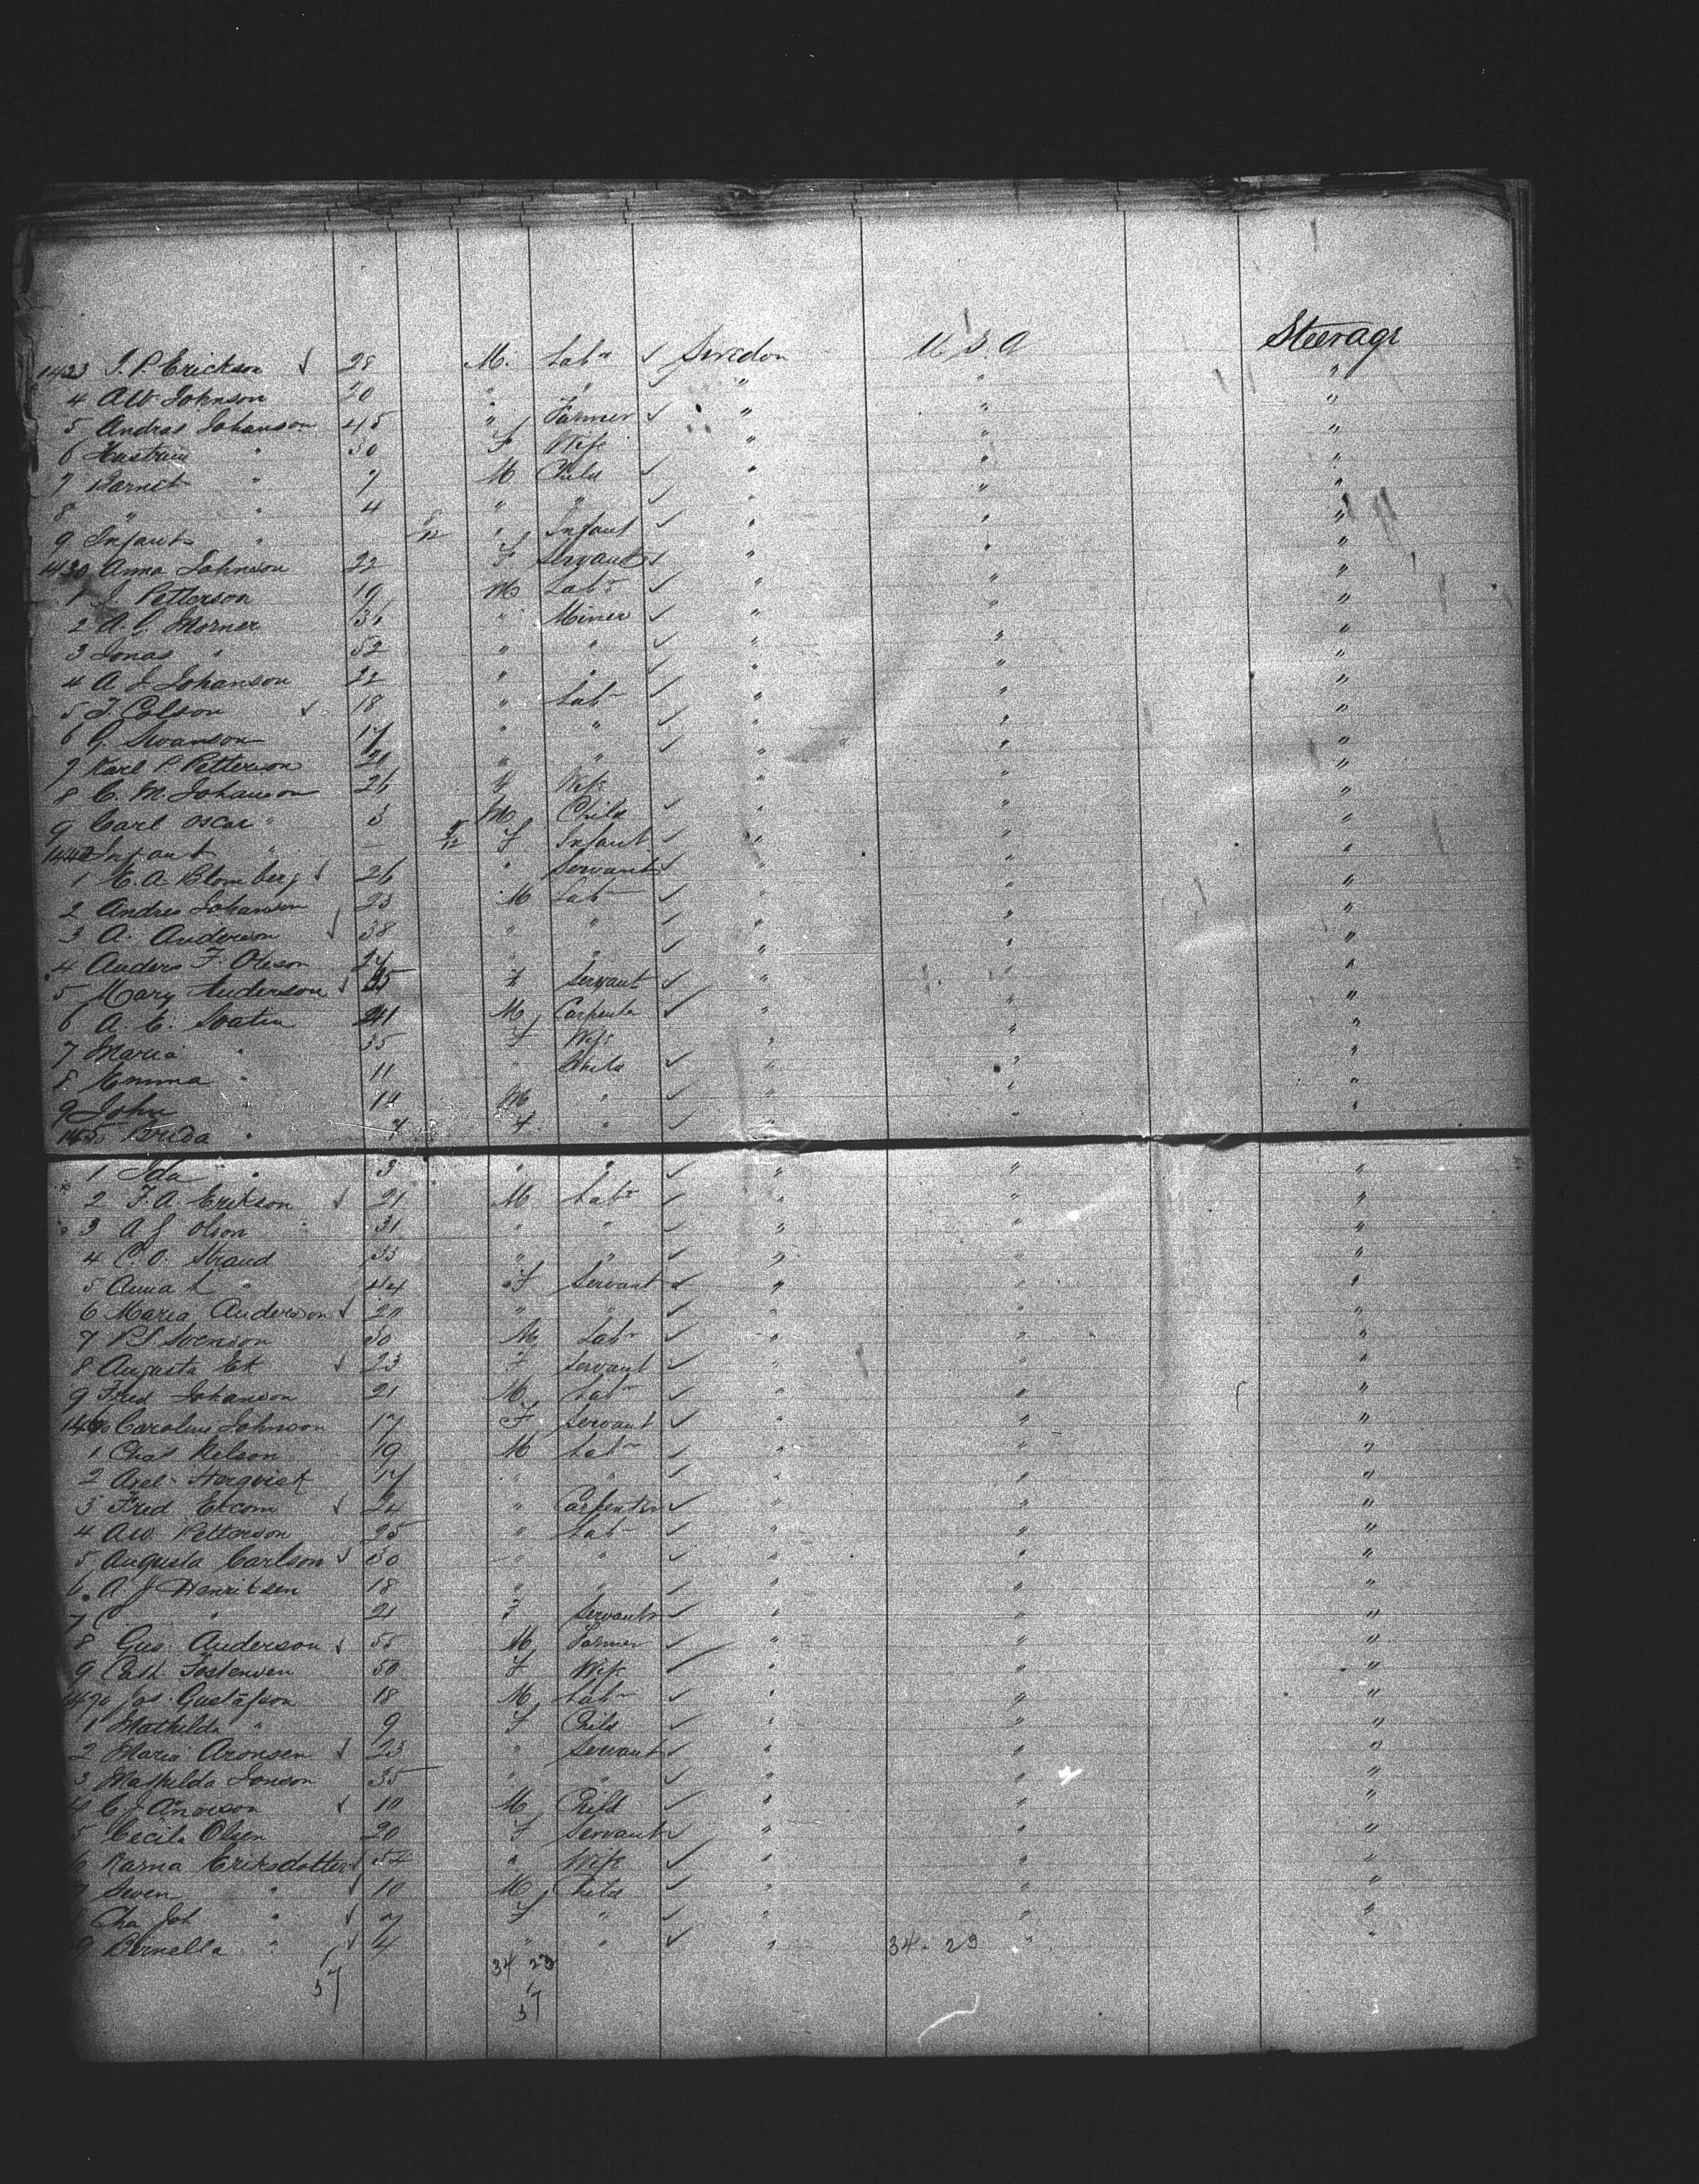 1423 J. P. Erickson 28 M. Labr Sweden U S A Steerage
4 A W Johnson 20 " " " " "
5 Andras Johanson 45 " Farmer " " "
6 Hustrue " 30 F Wife " " "
7 Barnet " 7 M Child " " "
8 " " 4 " " " " "
9 Infant " 8/12 " Infant " " "
1430 Anna Johnson 22 F Servant " " "
1 Petterson 19 M Labr " " "
2 A. C. Morner 31 " Miner " " "
3 Jonas " 52 " " " " "
4 A J Johanson 22 " " " " "
5 J. Colson 18 " Labr " " "
6 G. Swanson 17 " " " " "
7 Karl P. Petterson 21 " " " " "
8 C. M. Johanson 26 F Wife " " "
9 Carl Oscar " 3 M Child " " "
1440 Infant " — /12 F Infant " " "
1 E. A. Blomberg 26 " Servant " " "
2 Andres Johanson 23 M Labr " " "
3 A. Anderson 38 " " " " "
4 Anders F. Oleson 27 " " " " "
5 Mary Anderson 35 F Servant " " "
6 A. E. 41 M Carpenter " " "
7 Maria " 35 F Wife " " "
8 Emma " 11 " Child " " "
9 John 10 M " " " "
145 " 7 F " " " "
1 Ida " 3 " " " " "
2 F. A. Erikson 21 M Labr " " "
3 A J Olson 31 " " " " "
4 C. O. Strand 33 " " " " "
5 Anna L " 44 F Servant " " "
6 Maria Anderson 20 " " " " "
7 P S Svenson 30 M Labr " " "
8 Augusta Ek 23 F Servant " " "
9 Fred Johanson 21 M Labr " " "
1460 Caroline Johnson 17 F Servant " " "
1 Chas Nelson 19 M Labr " " "
2 Axel 17 " " " " "
3 Fred Ekcom 24 " Carpenter " " "
4 A W Petterson 25 " Labr " " "
5 Augusta Carlson 30 " " " " "
6 A J Henriksen 18 " " " " "
7 C " 21 F Servant " " "
8 Gus. Anderson 55 M Farmer " " "
9 Cath 50 F Wife " " "
1470 Jos. Gustafson 18 M Labr " " "
1 Mathilda " 9 F Child " " "
2 Maria Aronsen 23 " Servant " " "
3 Mathilda Jonson 35 " " " " "
4 C J Anerson 10 M Child " " "
5 Cecila Olsen 20 F Servant " " "
6 Karna Eriksdotter 52 " Wife " " "
7 Swen " 10 M Child " " "
Cha Joh " 7 F " " " "
9 Pernella " 4 " " " 34 - 23 " "
57 34 23
57